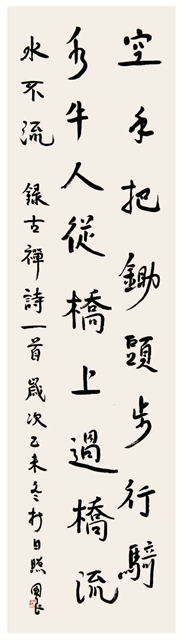 空手把鋤頭步行騎
水牛人從橋上過橋流
水不流 錄古禪詩一首 歲次乙未冬於日照 國江